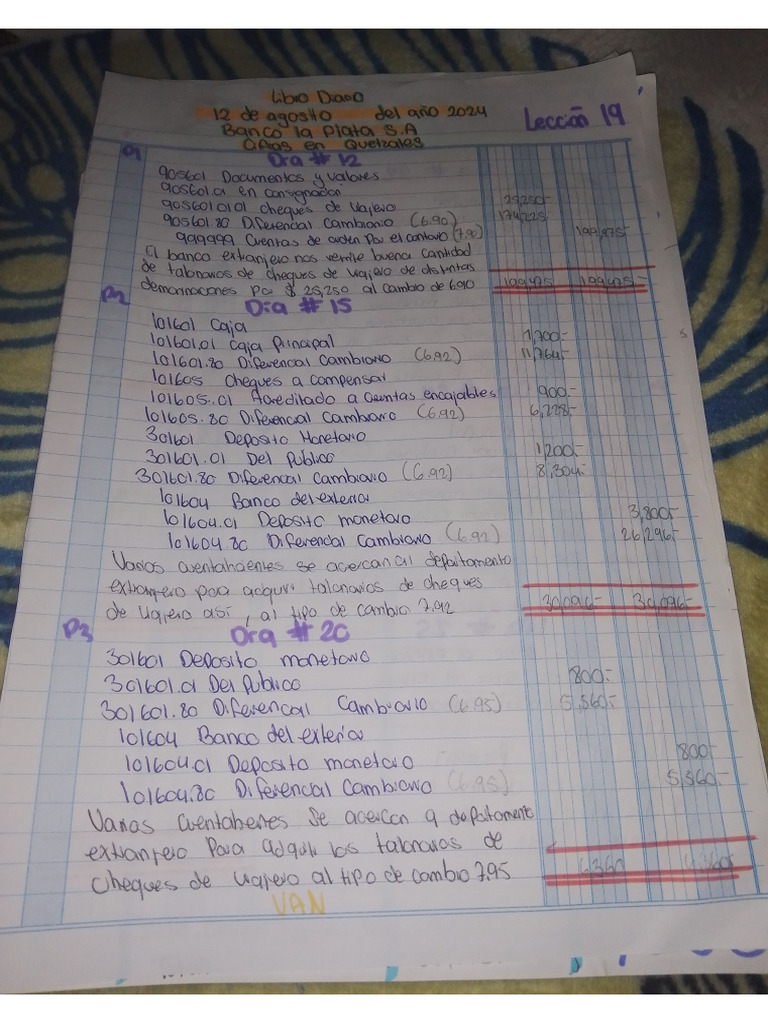 Libro Diario
12 de agosto del año 2024
Banco la Plata S.A
Cifras en Quetzales
Lección 19
P1 Día # 12
905601 Documentos y valores
905601.01 en consignación
905601.01.01 Cheques de viajero 25,250-
905601.80 Diferencial Cambiario (6.90) 174,225
999999 Cuentas de orden por el contario (7.90) 199,475-
El banco extranjero nos remite buena cantidad
de talonarios de cheques de viajero de distintas
demominaciones por $ 25,250 al cambio de 6.90 199,475 199,475-
P2 Día # 15
101601 Caja
101601.01 Caja Principal 1,700.-
101601.80 Diferencial Cambiario (6.92) 11,764-
101605 Cheques a compensar
101605.01 Acreditado a cuentas encajables 900.-
101605.80 Diferencial Cambiario (6.92) 6,228.-
301601 Deposito Monetario
301601.01 Del Público 1,200.-
301601.80 Diferencial Cambiario (6.92) 8,304.-
101604 Banco del exterior
101604.01 Deposito monetaro 3,800.-
101604.80 Diferencial Cambiario (6.92) 26,296.-
Varios cuentahaientes se acercan al departamento
extranjero para adquirir talonarios de cheques
de viajero asi, al tipo de cambio 7.92 30,096- 30,096-
P3 Día # 20
301601 Deposito monetaro
301601.01 Del Público 800.-
301601.80 Diferencial Cambiario (6.95) 5,560.-
101604 Banco del exterior
101604.01 Deposito monetaro 800-
101604.80 Diferencial Cambiario (6.95) 5,560.-
Varias cuentahentes se acercan a departamento
extranjero para adquirir los talonarios de
cheques de viajero al tipo de cambio 7.95 6,360
VAN